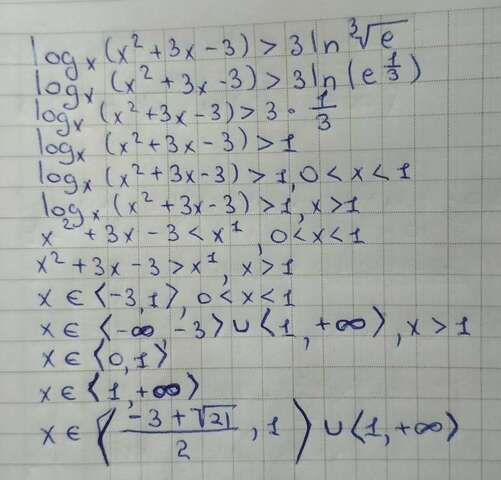 logₓ(x² + 3x − 3) > 3 ln ∛e
logₓ(x² + 3x − 3) > 3 ln(e^(1/3))
logₓ(x² + 3x − 3) > 3 · 1/3
logₓ(x² + 3x − 3) > 1
logₓ(x² + 3x − 3) > 1, 0 < x < 1
logₓ(x² + 3x − 3) > 1, x > 1
x² + 3x − 3 < x¹, 0 < x < 1
x² + 3x − 3 > x¹, x > 1
x ∈ ⟨−3, 1⟩, 0 < x < 1
x ∈ ⟨−∞, −3⟩ ∪ ⟨1, +∞⟩, x > 1
x ∈ ⟨0, 1⟩
x ∈ ⟨1, +∞⟩
x ∈ ⟨(−3 + √21)/2, 1⟩ ∪ ⟨1, +∞⟩